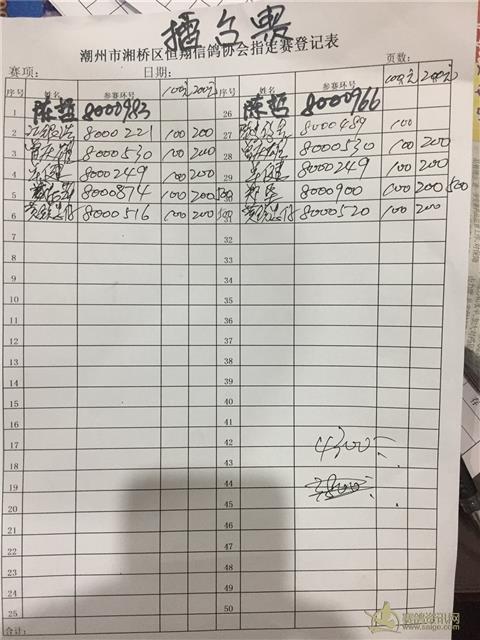 擂台赛
潮州市湘桥区恒翔信鸽协会指定赛登记表
赛项： 日期： 页数：
序号 姓名 参赛环号 100元 200元 序号 姓名 参赛环号 100元 200元
1 陈哲 8000983 26 陈哲 8000966
2 8000221 100 200 27 8000489 100
3 8000530 100 200 28 8000530 100 200
4 8000249 100 200 29 8000249 100 200
5 8000874 100 200 500 30 8000900 100 200 500
6 8000516 100 200 31 8000520 100 200
7 32
8 33
9 34
10 35
11 36
12 37
13 38
14 39
15 40
16 41
17 42 4300
18 43
19 44 3800
20 45
21 46
22 47
23 48
24 49
25 50
合计：
赛鸽资讯网
www.saige.com